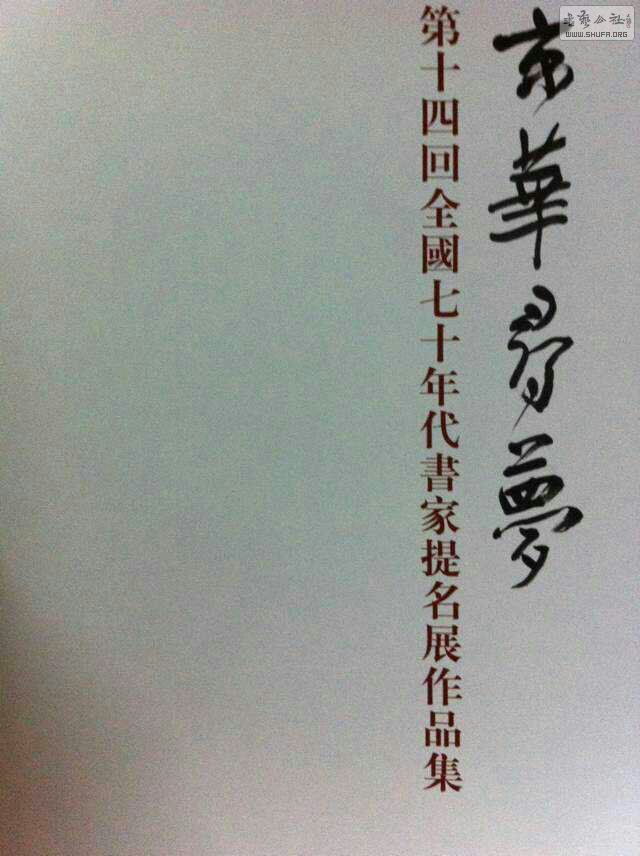 京華尋夢
第十四回全國七十年代書家提名展作品集
书艺公社
WWW.SHUFA.ORG